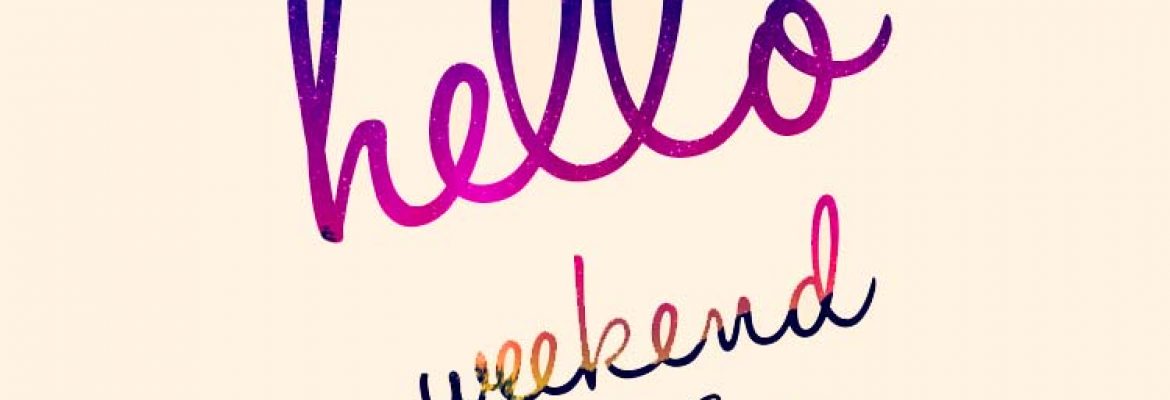 hello
weekend